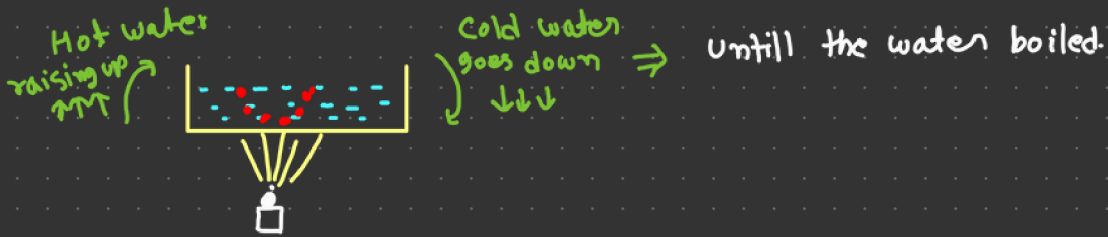 Hot water
raising up
↑↑↑
Cold water
goes down
↓↓↓
⇒ untill the water boiled.